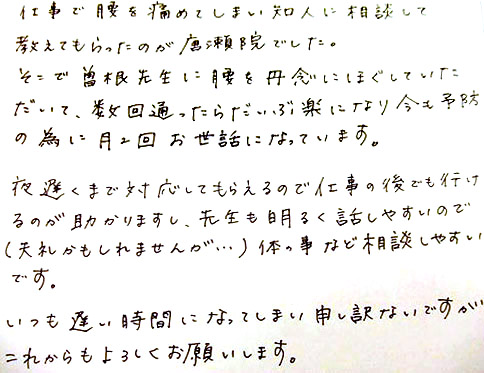 仕事で腰を痛めてしまい知人に相談して
教えてもらったのが唐瀬院でした。
そこで曽根先生に腰を丹念にほぐしていた
だいて、数回通ったらだいぶ楽になり今も予防
の為に月2回お世話になっています。
夜遅くまで対応してもらえるので仕事の後でも行け
るのが助かりますし、先生も明るく話しやすいので
(失礼かもしれませんが…)体の事など相談しやすい
です。
いつも遅い時間になってしまい申し訳ないですが
これからもよろしくお願いします。